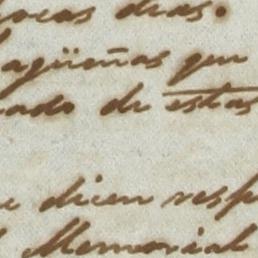 ocas dias.
lagüeñas que
ado de estas
e dicen resp
l Memorial